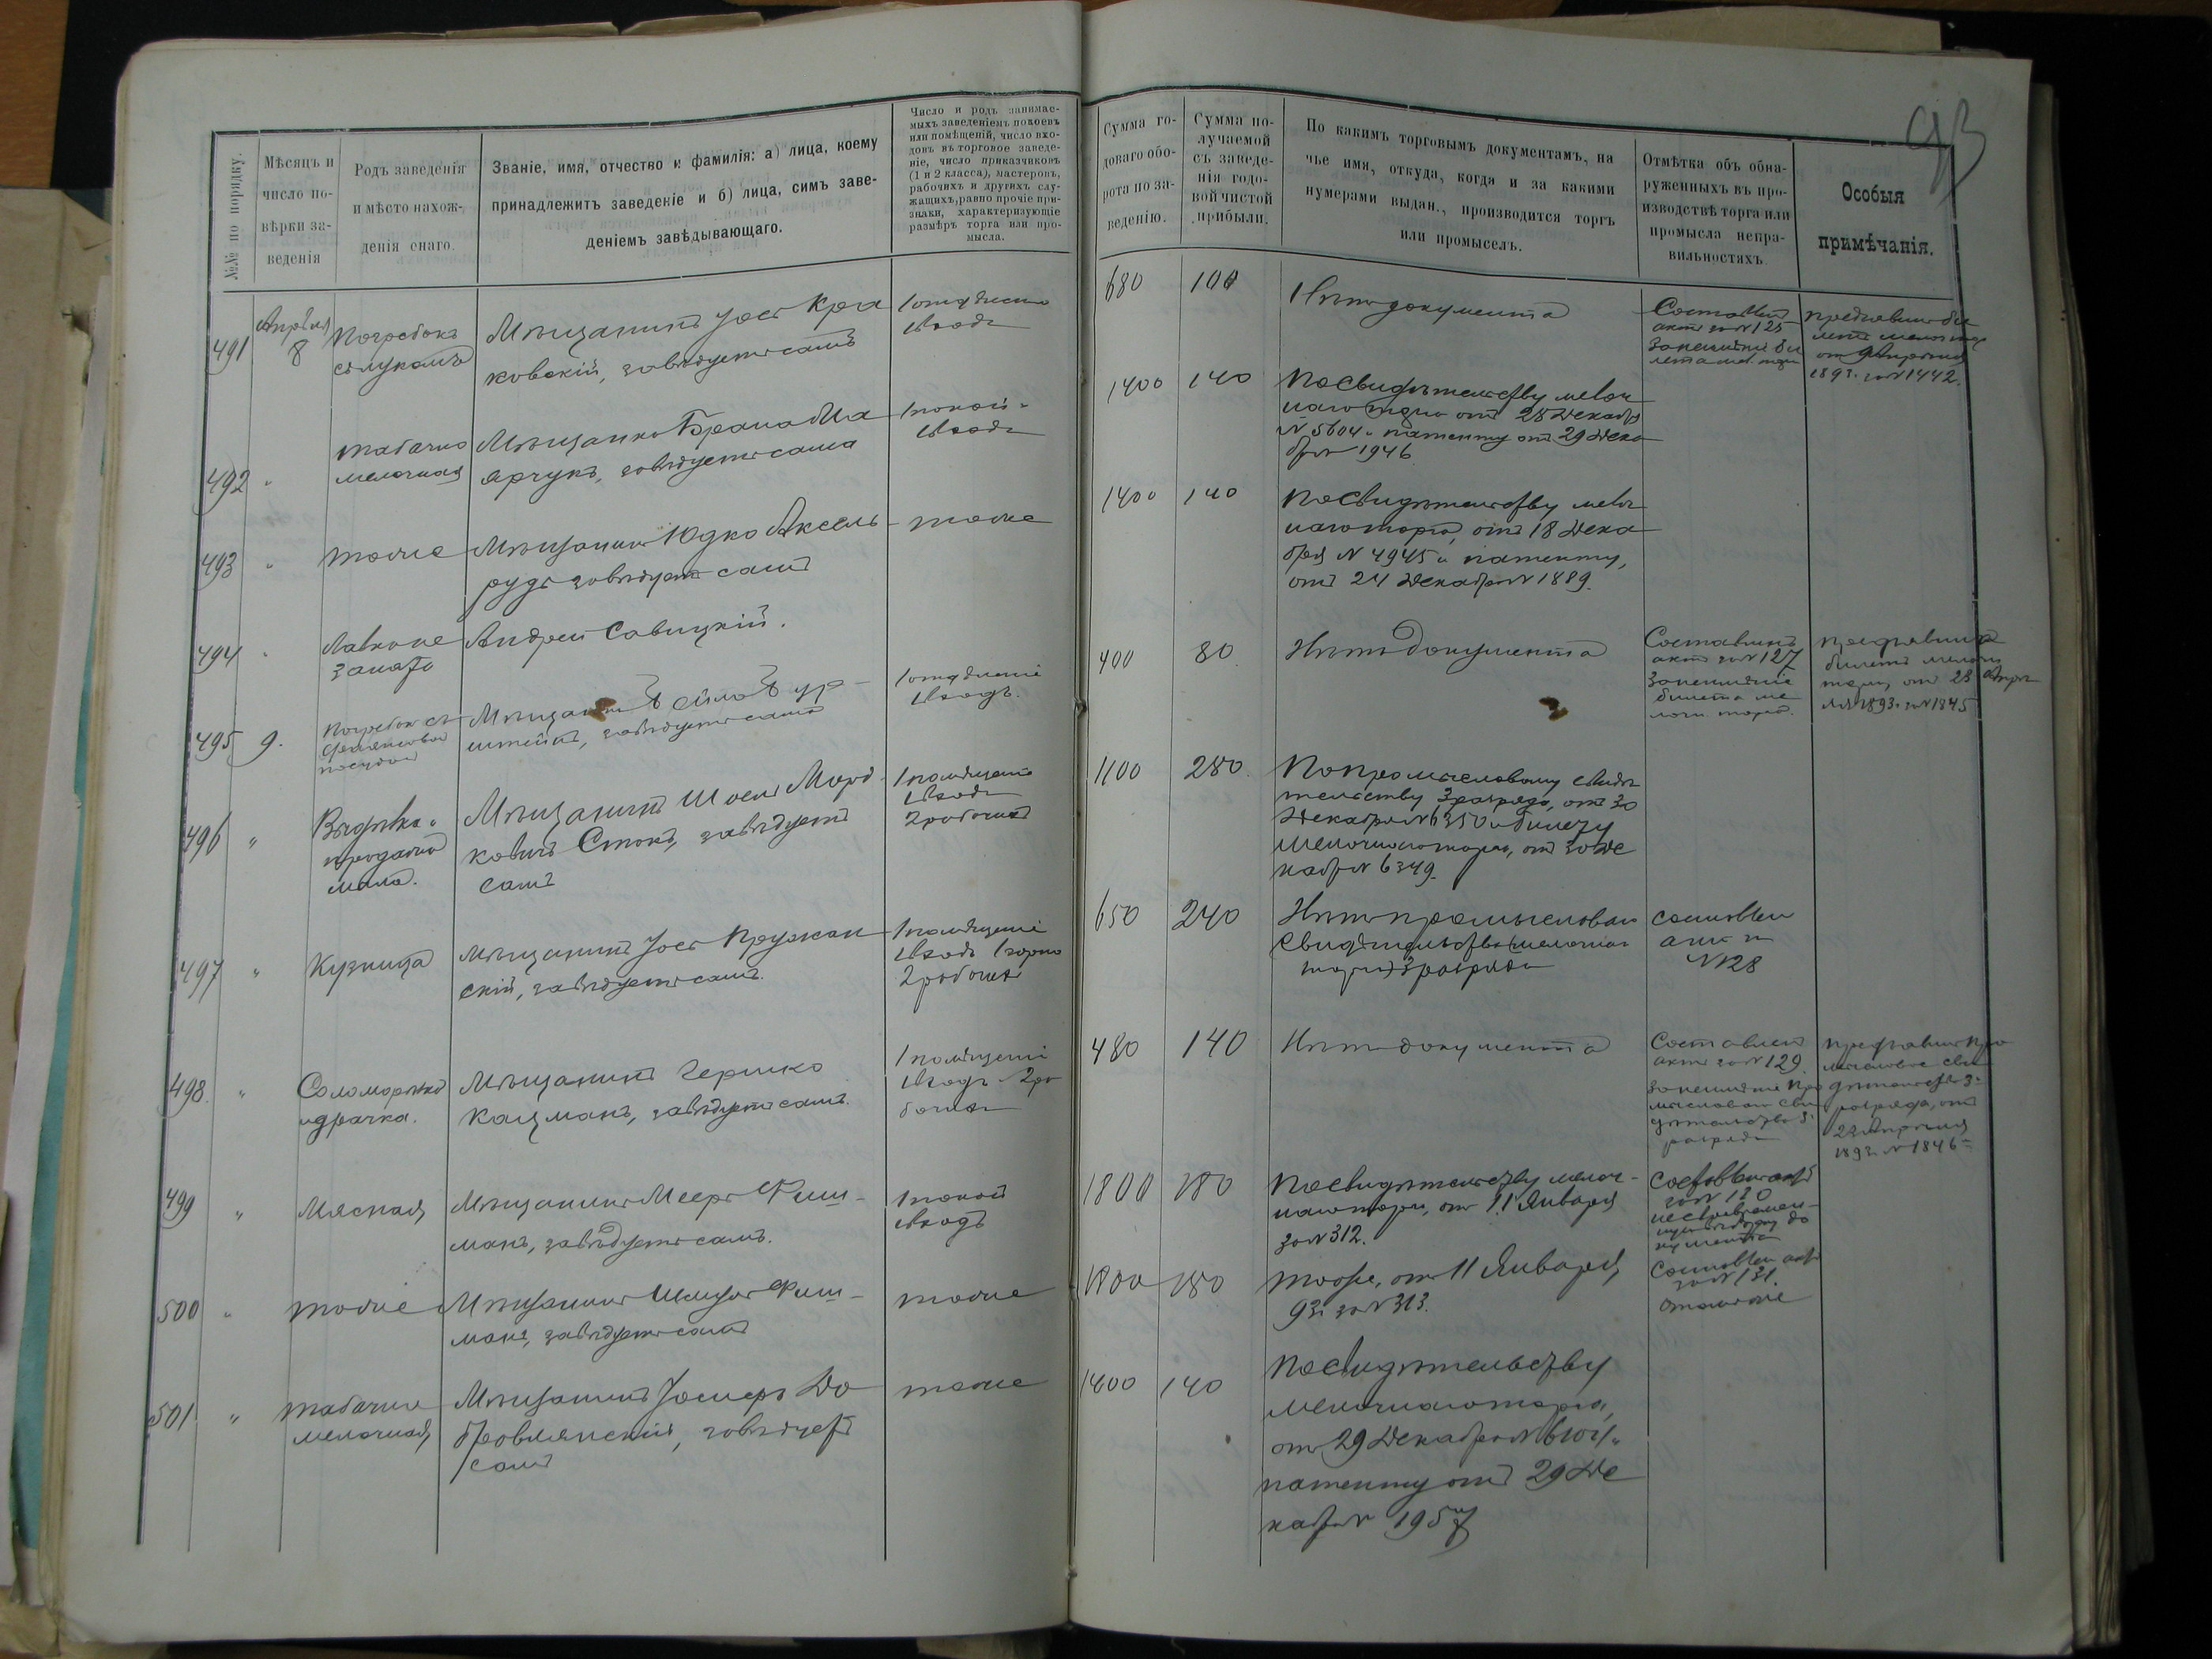 93
№№ по порядку.
Мѣсяцъ и
число по-
вѣрки за-
веденія
Родъ заведенія
и мѣсто нахож-
денія онаго.
Званіе, имя, отчество и фамилія: а) лица, коему
принадлежитъ заведеніе и б) лица, симъ заве-
деніемъ завѣдывающаго.
Число и родъ занимае-
мыхъ заведеніемъ покоевъ
или помѣщеній, число вхо-
довъ въ торговое заведе-
ніе, число приказчиковъ
(1 и 2 класса), мастеровъ,
рабочихъ и другихъ слу-
жащихъ, равно прочіе при-
знаки, характеризующіе
размѣръ торга или про-
мысла.
Сумма го-
доваго обо-
рота по за-
веденію.
Сумма по-
лучаемой
съ заведе-
нія годо-
вой чистой
прибыли.
По какимъ торговымъ документамъ, на
чье имя, откуда, когда и за какими
нумерами выдан., производится торгъ
или промыселъ.
Отмѣтка объ обна-
руженныхъ въ про-
изводствѣ торга или
промысла непра-
вильностяхъ.
Особыя
примѣчанія.
491
Апрѣля
8
Погребокъ
съ лукомъ
Мѣщанинъ Іось Кра
ковскій, завѣдуетъ самъ
1 отдѣленіе
1 входъ
680
100
Нѣтъ документа
Составленъ
актъ за № 125
за неимѣніе би
лета мел. торг.
предъявилъ би
летъ мелоч. тор
от 9 Апрѣля
1893 г. за № 1442.
492
"
табачно
мелочная
Мѣщанка Брана Ма
ярчукъ, завѣдуетъ сама
1 покой
1 входъ
1400
140
По свидѣтельству мелоч
наго торга от 28 Декабр
№ 5604 и патенту от 29 Дека
бря № 1946
493
"
тоже
Мѣщанинъ Юдко Аксель
рудъ завѣдуетъ самъ
тоже
1400
140
По свидѣтельству мелоч
наго торга, отъ 18 Дека
бря № 4945 и патенту,
отъ 24 Декабря № 1889.
494
"
Лавка не
занята
Андрей Савицкій.
495
9.
Погребокъ съ
фаянсовой
посудой
штейнъ, завѣдуетъ самъ
1 отдѣленіе
1 входъ.
400
80
Нѣтъ документа
Составленъ
актъ за № 127
за неимѣніе
билета ме
лочн. торга.
предъявилъ
билетъ мелочн
торга, от 23 Апрѣ
ля 1893 г. за № 1845
496
"
Выдѣлка и
продажа
мыла.
Мѣщанинъ ШоельМорд
ковичъ Стокъ, завѣдуетъ
самъ
1 помѣщеніе
1 входъ
2 рабочихъ
1100
280
По промысловому свидѣ
тельству 3 разряда, отъ 30
Декабря № 6350 и билету
мелочнаго торга, отъ 30 Де
кабря № 6349.
497
"
Кузница
Мѣщанинъ Іось Пружан
скій, завѣдуетъ самъ.
1 помѣщеніе
1 входъ 1 горно
2 рабочихъ
650
240
Нѣтъ промысловаго
свидѣтельства (мелочнаго
торга) 3 разряда
составленъ
актъ за
№ 128
498.
"
Соломорѣзка
и драчка.
Мѣщанинъ Гершко
Кацманъ, завѣдуетъ самъ.
1 помѣщеніе
1 входъ 2 ра
бочихъ
480
140
Нѣтъ документа
Составленъ
актъ за № 129.
за неимѣніе про
мысловаго сви
дѣтельства 3
разряда
предъявилъ про
мысловое сви
дѣтельство 3
разряда, отъ
23 Апрѣля
1893 г. № 1846
499
"
Мясная
Мѣщанинъ Мееръ Фиш-
манъ, завѣдуетъ самъ.
1 покой
1 входъ
1800
180
По свидѣтельству мелоч-
наго торга, от 11 Января
за № 312.
Составленъ актъ
за № 130
документа
500
"
тоже
Мѣщанинъ Фиш-
манъ, завѣдуетъ самъ
тоже
1800
180
тоже, от 11 Января
93 г за № 313.
Составленъ актъ
за № 131.
501
"
табачно
мелочная
Мѣщанинъ Іосифъ До
бровлянскій, завѣдуетъ
самъ
тоже
1400
140
По свидѣтельству
мелочнаго торга,
от 29 Декабря №
патенту отъ 29 Де
кабря № 1957